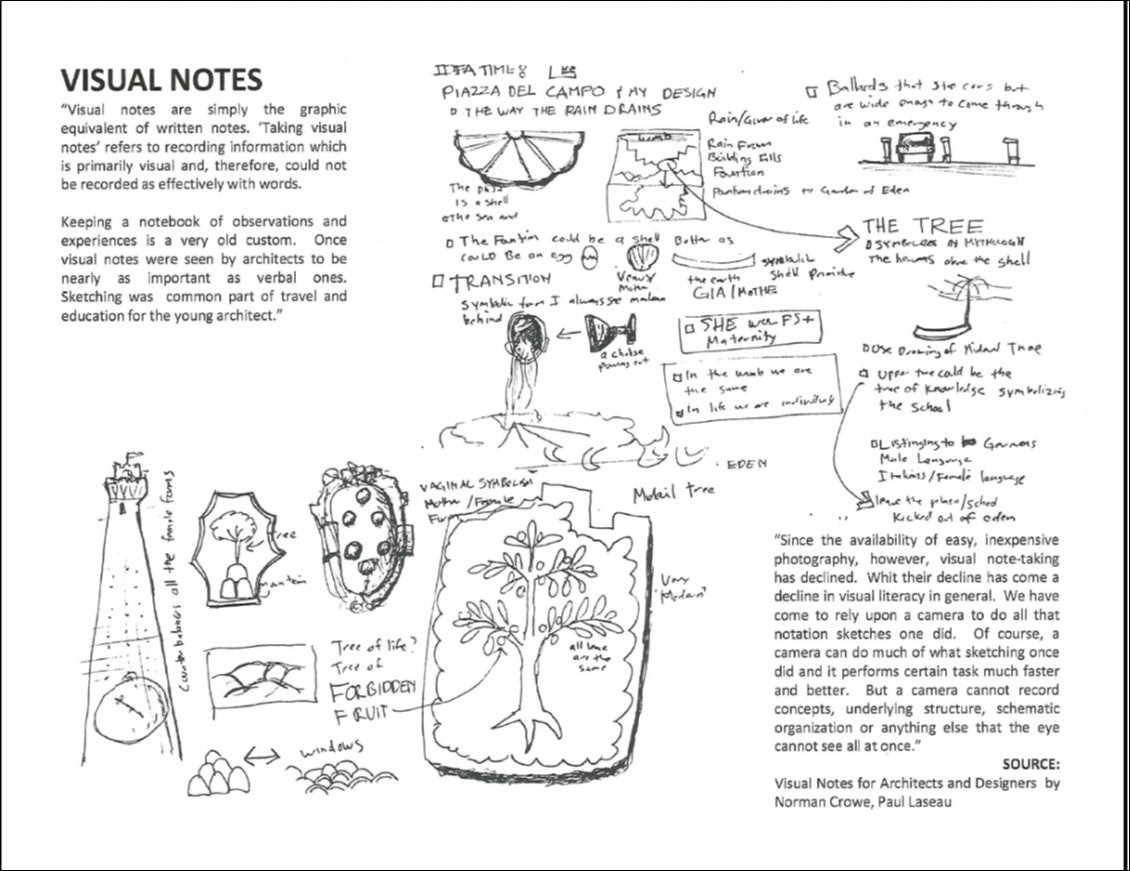 VISUAL NOTES
"Visual notes are simply the graphic
equivalent of written notes. 'Taking visual
notes' refers to recording information which
is primarily visual and, therefore, could not
be recorded as effectively with words.
Keeping a notebook of observations and
experiences is a very old custom. Once
visual notes were seen by architects to be
nearly as important as verbal ones.
Sketching was common part of travel and
education for the young architect."
PIAZZA DEL CAMPO & MY DESIGN
THE WAY THE RAIN DRAINS
The
Is a shell
the sea and
Rain/Giver of life
Rain From
Building Fills
Fountian
drains to Garden of Eden
Ballards that she cars but
are wide to come through
in an emergency
The could be a shell
COULD Be an egg
Venus/
Mother
Bottom as
the earth
GIA/MOTHE
symbolic
Shell
THE TREE
SYMBOLIZES IN MYTHOLOGY
The heavens above the shell
TRANSITION
Symbolic form I always see
behind
a
pouring out
SHE
Maternity
In the womb we are
the same
In life we are
Use Drawing of Tree
Upper tree could be the
tree of knowledge symbolizing
the School
to Germans
Male Language
Italians/Female language
leave the
Kicked out of eden
EDEN
Counter balances all the female forms
Tree
mountain
VAGINAL SYMBOLISM
Mother/Female
Form
tree
Very
all
are the
same
Tree of life?
Tree of
FORBIDDEN
FRUIT
windows
"Since the availability of easy, inexpensive
photography, however, visual note-taking
has declined. Whit their decline has come a
decline in visual literacy in general. We have
come to rely upon a camera to do all that
notation sketches one did. Of course, a
camera can do much of what sketching once
did and it performs certain task much faster
and better. But a camera cannot record
concepts, underlying structure, schematic
organization or anything else that the eye
cannot see all at once."
SOURCE:
Visual Notes for Architects and Designers by
Norman Crowe, Paul Laseau